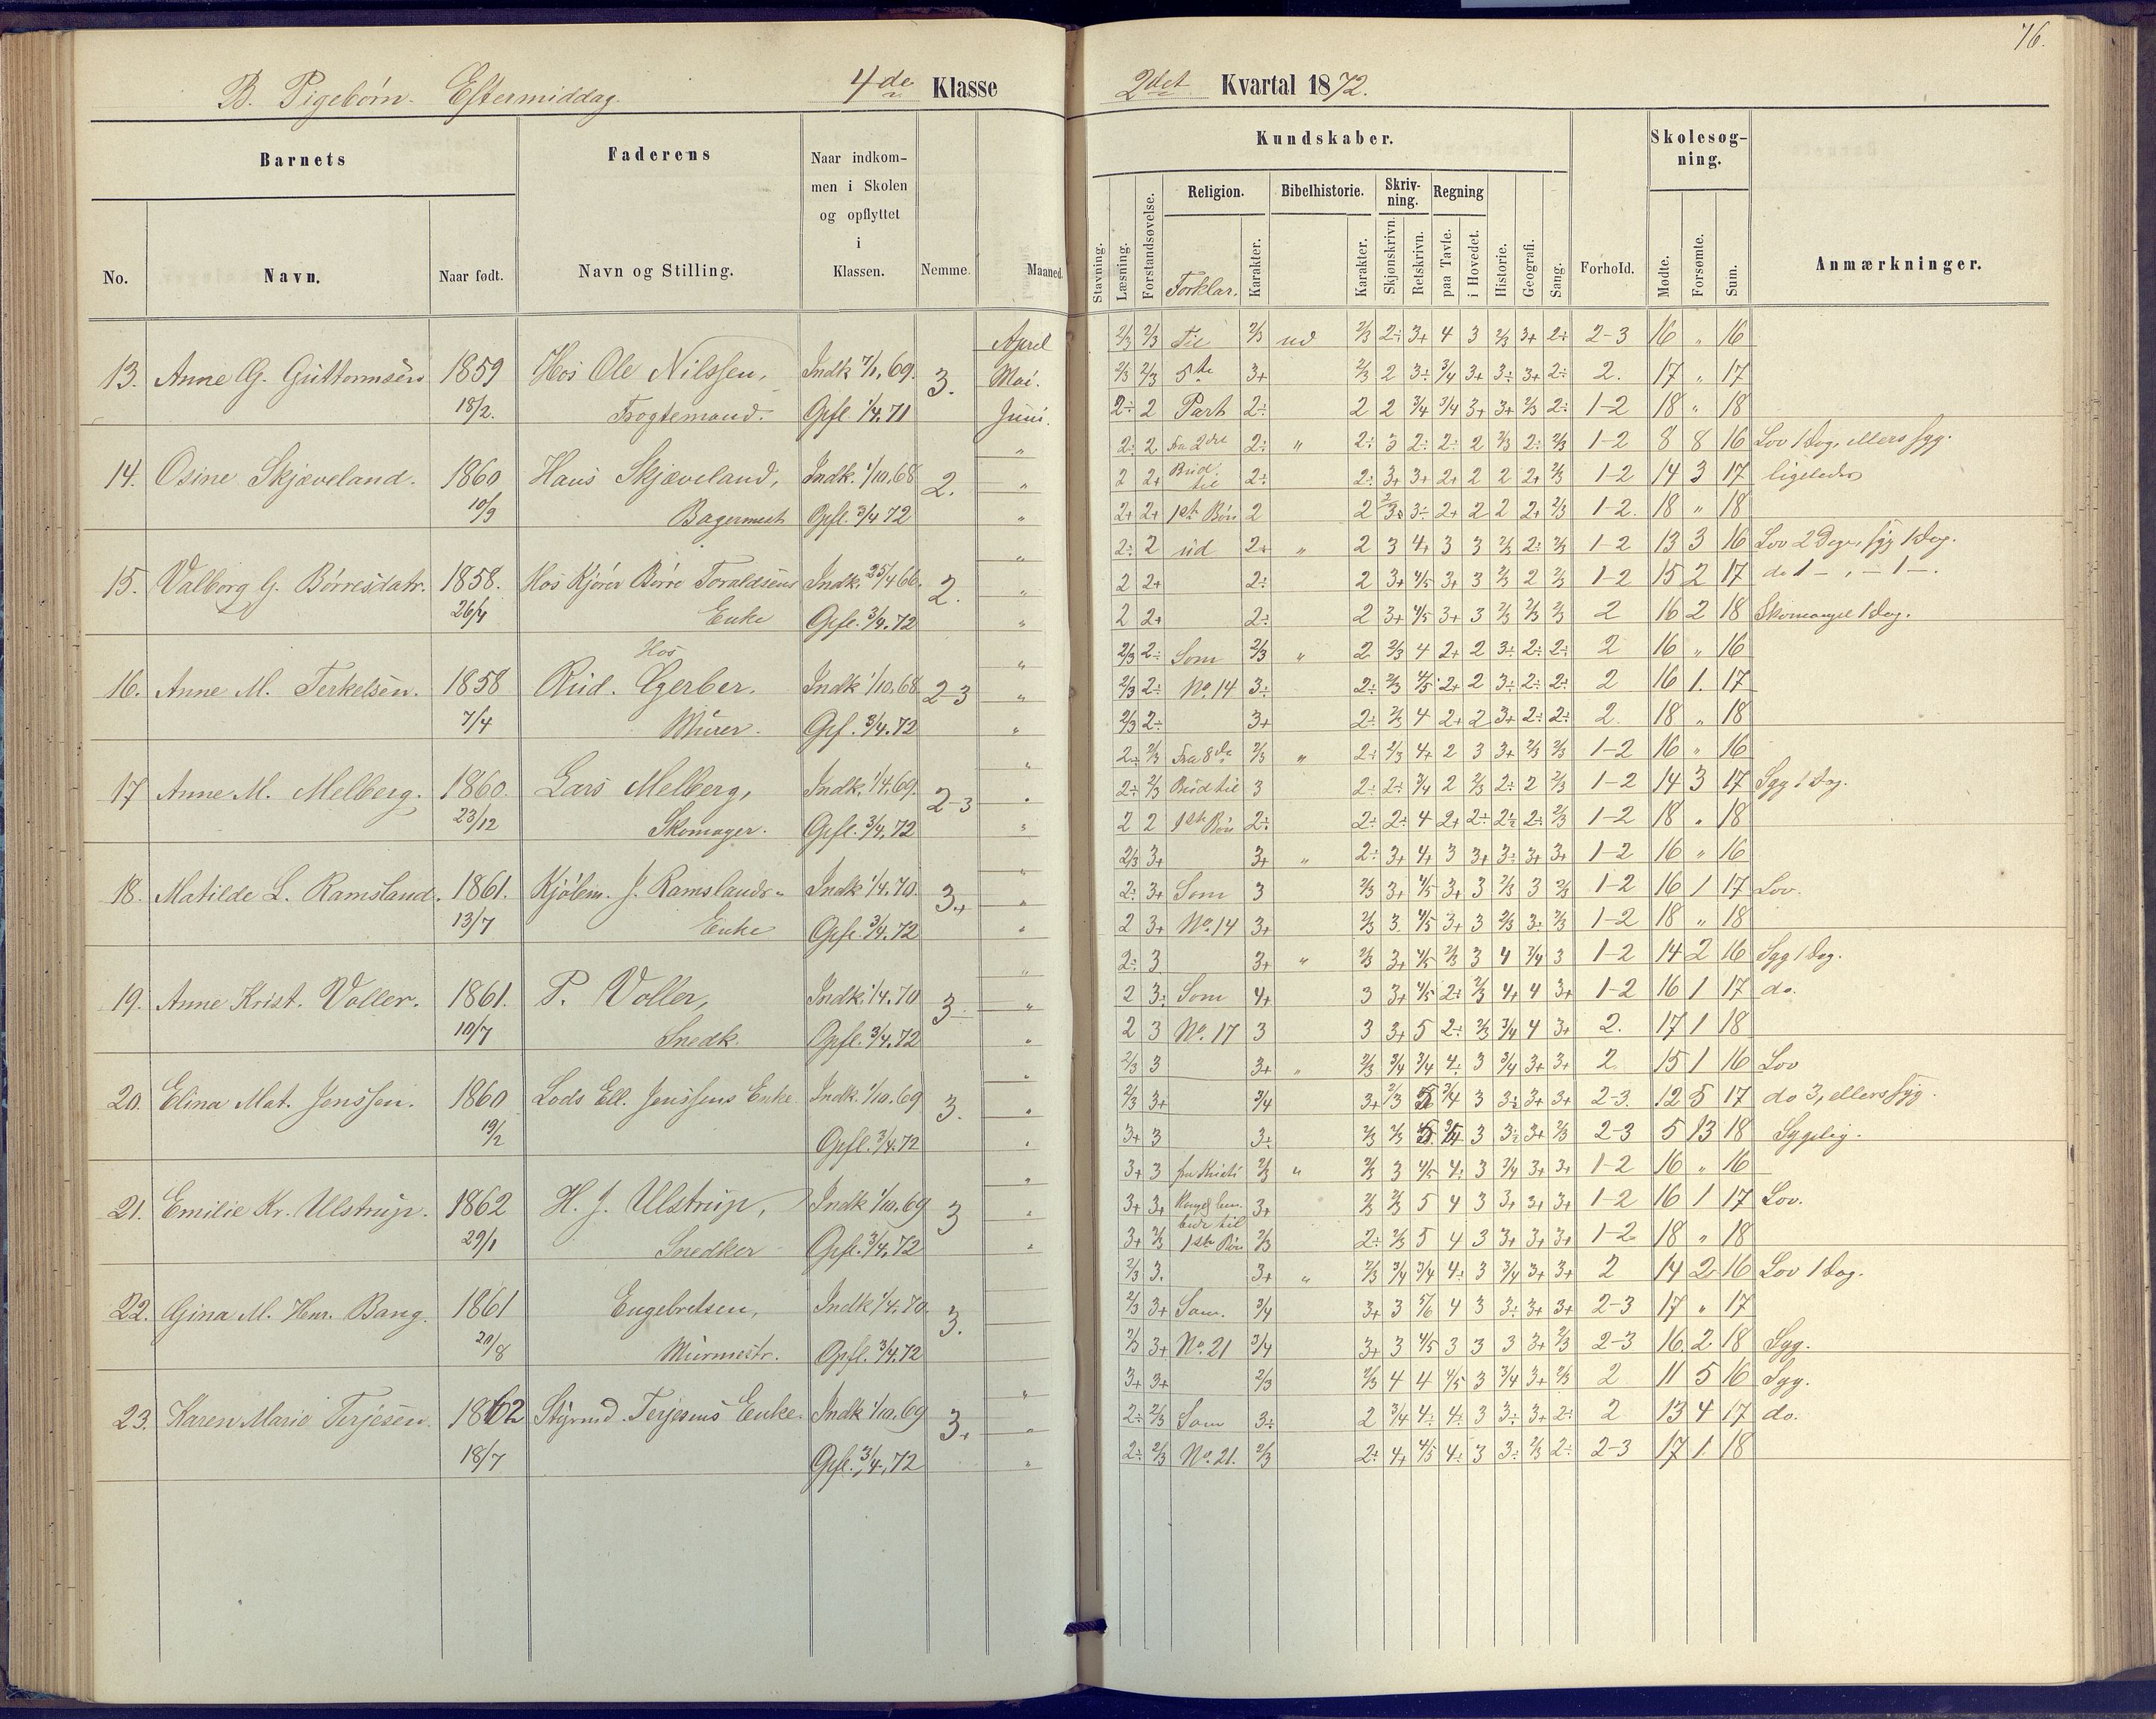 76.
B. Pigebørn. Eftermiddag. 4de Klasse
2det Kvartal 1872.
Barnets
Faderens
Naar indkommen i Skolen og opflyttet i Klassen.
No. Navn. Naar født. Navn og Stilling. Nemme. Maaned.
Kundskaber.
Skolesøgning.
Religion. Bibelhistorie. Skrivning. Regning
Stavning. Læsning. Forstandsøvelse. Forklar. Karakter. Karakter. Skjønskrivn. Retskrivn. paa Tavle. i Hovedet. Historie. Geografi. Sang. Forhold. Mødte. Forsømte. Sum. Anmærkninger.
13. Anne G. Guttormsen 1859 18/2. Hos Ole Nilssen, Indk 7/1, 69. Opfl 1/4. 71 3.
April 2/3 2/3 Til 2/3 ud 2/3 2÷ 3+ 4 3 2/3 3+ 2÷ 2-3 16 " 16
Mai. 2/3 2/3 5te 3+ 2/3 2 3÷ 3/4 3+ 3÷ 3+ 2÷ 2. 17 " 17
Juni. 2÷ 2 Part 2÷ 2 2 3/4 3/4 3+ 3+ 2/3 2÷ 1-2 18 " 18
14. Osine Skjæveland. 1860 10/9 Hans Skjæveland, Bagermest Indk. 1/10.68 Opfl. 3/4 72 2.
" 2÷ 2 Fra 2den 2÷ " 2÷ 3 2÷ 2÷ 2 2/3 2÷ 2/3 1-2 8 8 16 Lov 1 Dag, ellers syg.
" 2 2+ Bud til 2÷ 2÷ 3+ 3+ 2+ 2 2 2+ 2/3 1-2 14 3 17 ligeledes
" 2+ 2+ 1ste Bøn 2 2 3÷ 2+ 2 2 2+ 2/3 1-2. 18 " 18
15. Valborg G. Børresdatr. 1858. 26/4 Hos Kjører Børre Toraldsens Enke Indk. 25/4 66. Opfl. 3/4.72 2.
" 2÷ 2 ud 2+ " 2 3 4+ 3 3 2/3 2÷ 2/3 1-2 13 3 16 Lov 2 Dage, syg 1 Dag.
" 2 2+ 2÷ 2 3+ 4/5 3+ 3 2/3 2 2/3 1-2 15 2 17 do 1 – , – 1 –.
" 2 2+ 2÷ 2 3+ 4/5 3+ 3 2/3 2/3 2/3 2 16 2 18 Skomangel 1 Dag.
16. Anne M. Terkelsen. 1858 7/4 Hos Rud. Gerber. Murer. Indk 1/10.68 Opf. 3/4.72 2-3
" 2/3 2÷ Som 2/3 " 2 2/3 4 2+ 2 3÷ 2÷ 2÷ 2 16 " 16
" 2/3 2÷ No. 14 3÷ 2÷ 2/3 4/5 2+ 2 3÷ 2÷ 2÷ 2 16 1. 17
" 2/3 2÷ 3+ 2÷ 2/3 4 2+ 2 3+ 2÷ 2÷ 2. 18 " 18
17 Anne M. Melberg. 1860. 23/12 Lars Melberg, Skomager. Indk. 1/4.69. Opfl. 3/4.72 2-3
" 2÷ 2/3 Fra 8de 2/3 " 2÷ 2/3 4+ 2 3 3+ 2/3 2/3 1-2 16 " 16
" 2÷ 2/3 Bud til 3 2÷ 2÷ 3/4 2 2/3 2÷ 2 2/3 1-2 14 3 17 Syg 1 Dag.
" 2 2 1ste Bøn 2÷ 2÷ 2÷ 4 2+ 2÷ 2÷ 2÷ 2/3 1-2 18 " 18
18. Matilde L. Ramsland. 1861. 13/7 Kjølem. J. Ramslands Enke Indk 1/4.70. Opfl. 3/4.72 3+
" 2/3 3+ 3+ " 2÷ 3+ 4+ 3 3+ 3÷ 3+ 3+ 1-2 16 " 16
" 2÷ 3+ Som 3 2/3 3+ 4/5 3+ 3 2/3 3 2/3 1-2 16 1 17 Lov.
" 2 3+ No. 14 3+ 2/3 3 4/5 3+ 3 2/3 3÷ 2/3 1-2 18 " 18
19. Anne Krist. Voller. 1861. 10/7 P. Voller, Snedk. Indk. 1/4.70 Opfl. 3/4.72 3
" 2÷ 3 3+ " 2/3 3+ 4/5 2/3 3 4 3/4 3 1-2 14 2 16 Syg 1 Dag.
" 2 3÷ Som 4+ 3 3+ 4/5 2÷ 2/3 4+ 4 3+ 1-2 16 1 17 do.
" 2 3 No. 17 3 3 3+ 5 2÷ 2/3 3/4 4 3+ 2. 17 1 18
20. Elina Mat. Jenssen. 1860 19/2 Lods Ell. Jenssens Enke Indk. 1/10.69 Opfl. 3/4.72 3.
" 2/3 3 3+ " 2/3 3/4 3/4 4÷ 3 3/4 3+ 3+ 2 15 1 16 Lov
" 2/3 3+ 3/4 3+ 2/3 5 3/4 3 3÷ 3+ 3+ 2-3. 12 5 17 do 3, ellers syg.
" 3+ 3 3÷ 2/3 2/3 5 3/4 3 3÷ 3+ 2/3 2-3 5 13 18 Sygelig.
21. Emilie Kr. Ulstrup. 1862 29/1 H. J. Ulstrup, Snedker Indk 1/10.69 Opfl. 3/4.72 3
" 3+ 3 fra Kristi 2/3 " 2/3 3 4/5 4÷ 3 3/4 3+ 3+ 1-2 16 " 16
" 3+ 3+ 3+ 2/3 2/3 5 4 3 3+ 3+ 3+ 1-2 16 1 17 Lov.
" 3+ 2/3 til 1ste Bøn 2/3 2÷ 2/3 5 4 3 3+ 3+ 3+ 1-2 18 " 18
22. Gina M. Henr. Bang. 1861 20/8 Engebretsen, Murmestr. Indk 1/4.70. Opfl. 3/4.72 3.
2/3 3. 3+ " 2/3 3/4 3/4 4÷ 3 3/4 3+ 3+ 2 14 2 16 Lov 1 Dag.
2/3 3+ Som. 3/4 3+ 3 5/6 4 3 3÷ 3+ 3+ 2-3 17 " 17
2/3 3+ No. 21 3/4 3+ 3 4/5 3 3 3 3+ 2/3 2-3 16. 2 18 Syg.
23. Karen Marie Terjesen. 1862 18/7 Styrmd. Terjesens Enke. Indk 1/10.69 Opfl. 3/4.72 3+
" 3+ 3+ 2/3 2/3 4 4 4/5 3 3/4 3+ 2/3 2 11 5 16 Syg.
" 2÷ 2/3 Som 3÷ 2 3/4 4÷ 4÷ 3 3÷ 3+ 2÷ 2 13 4 17 do.
" 2÷ 2/3 No. 21. 2/3 2÷ 4+ 4/5 4÷ 3 3÷ 2/3 2÷ 2-3 17 1 18